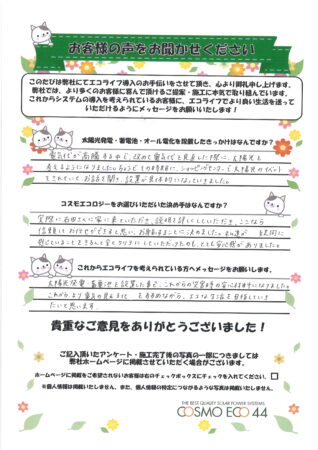 お客様の声をお聞かせください
このたびは弊社にてエコライフ導入のお手伝いをさせて頂き、心より御礼申し上げます。
弊社では、より多くのお客様に喜んで頂けるご提案・施工に本気で取り組んでいます。
これからシステムの導入を考えられているお客様に、エコライフでより良い生活を送って
いただけるようにメッセージをお願いします！
太陽光発電・蓄電池・オール電化を設置したきっかけはなんですか？
電気代が高騰する中で、改めて電気代を見直した際に、太陽光を
考えるようになりました。ちょうどその時期に、ショッピングセンターで太陽光のイベント
をされていて、お話を聞き、設置が具体的になっていきました。
コスモエコロジーをお選びいただいた決め手はなんですか？
実際に右田さんに家に来ていただき、説明を詳しくしていただき、ここなら
信頼してお任せができると思い、お願いすることに決めました。
感じていることをきちんと全てクリアにしていただったのも、とても安心感がありました。
これからエコライフを考えられている方へメッセージをお願いします。
太陽光発電、蓄電池を設置した事で、これからの災害時の安心にも繋がりました。
これからより電気の見える化で、エコな生活を目指していき
たいと思います。
貴重なご意見をありがとうございました！
ご記入頂いたアンケート・施工完了後の写真の一部につきましては
弊社ホームページに掲載させていただく場合がございます。
ホームページに掲載をご希望されないお客様は右のチェックボックスにチェックを入れてください。
※個人情報は掲載いたしません。また、個人情報の特定につながるような写真は掲載いたしません。
THE BEST QUALITY SOLAR POWER SYSTEMS
COSMO ECO 44